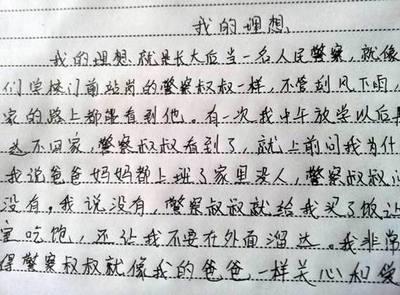 我的理想
我的理想就是长大后当一名人民警察,就像
们学校门前站岗的警察叔叔一样,不管刮风下雨,
家的路上都能看到他。有一次我中午放学以后
还不回家,警察叔叔看到了,就上前问我为什
我说爸爸妈妈都上班了家里没人,警察叔叔
没有。我说没有,警察叔叔就给我买了饭让
吃饱,还让我不要在外面溜达。我非常
得警察叔叔就像我的爸爸一样关心和爱